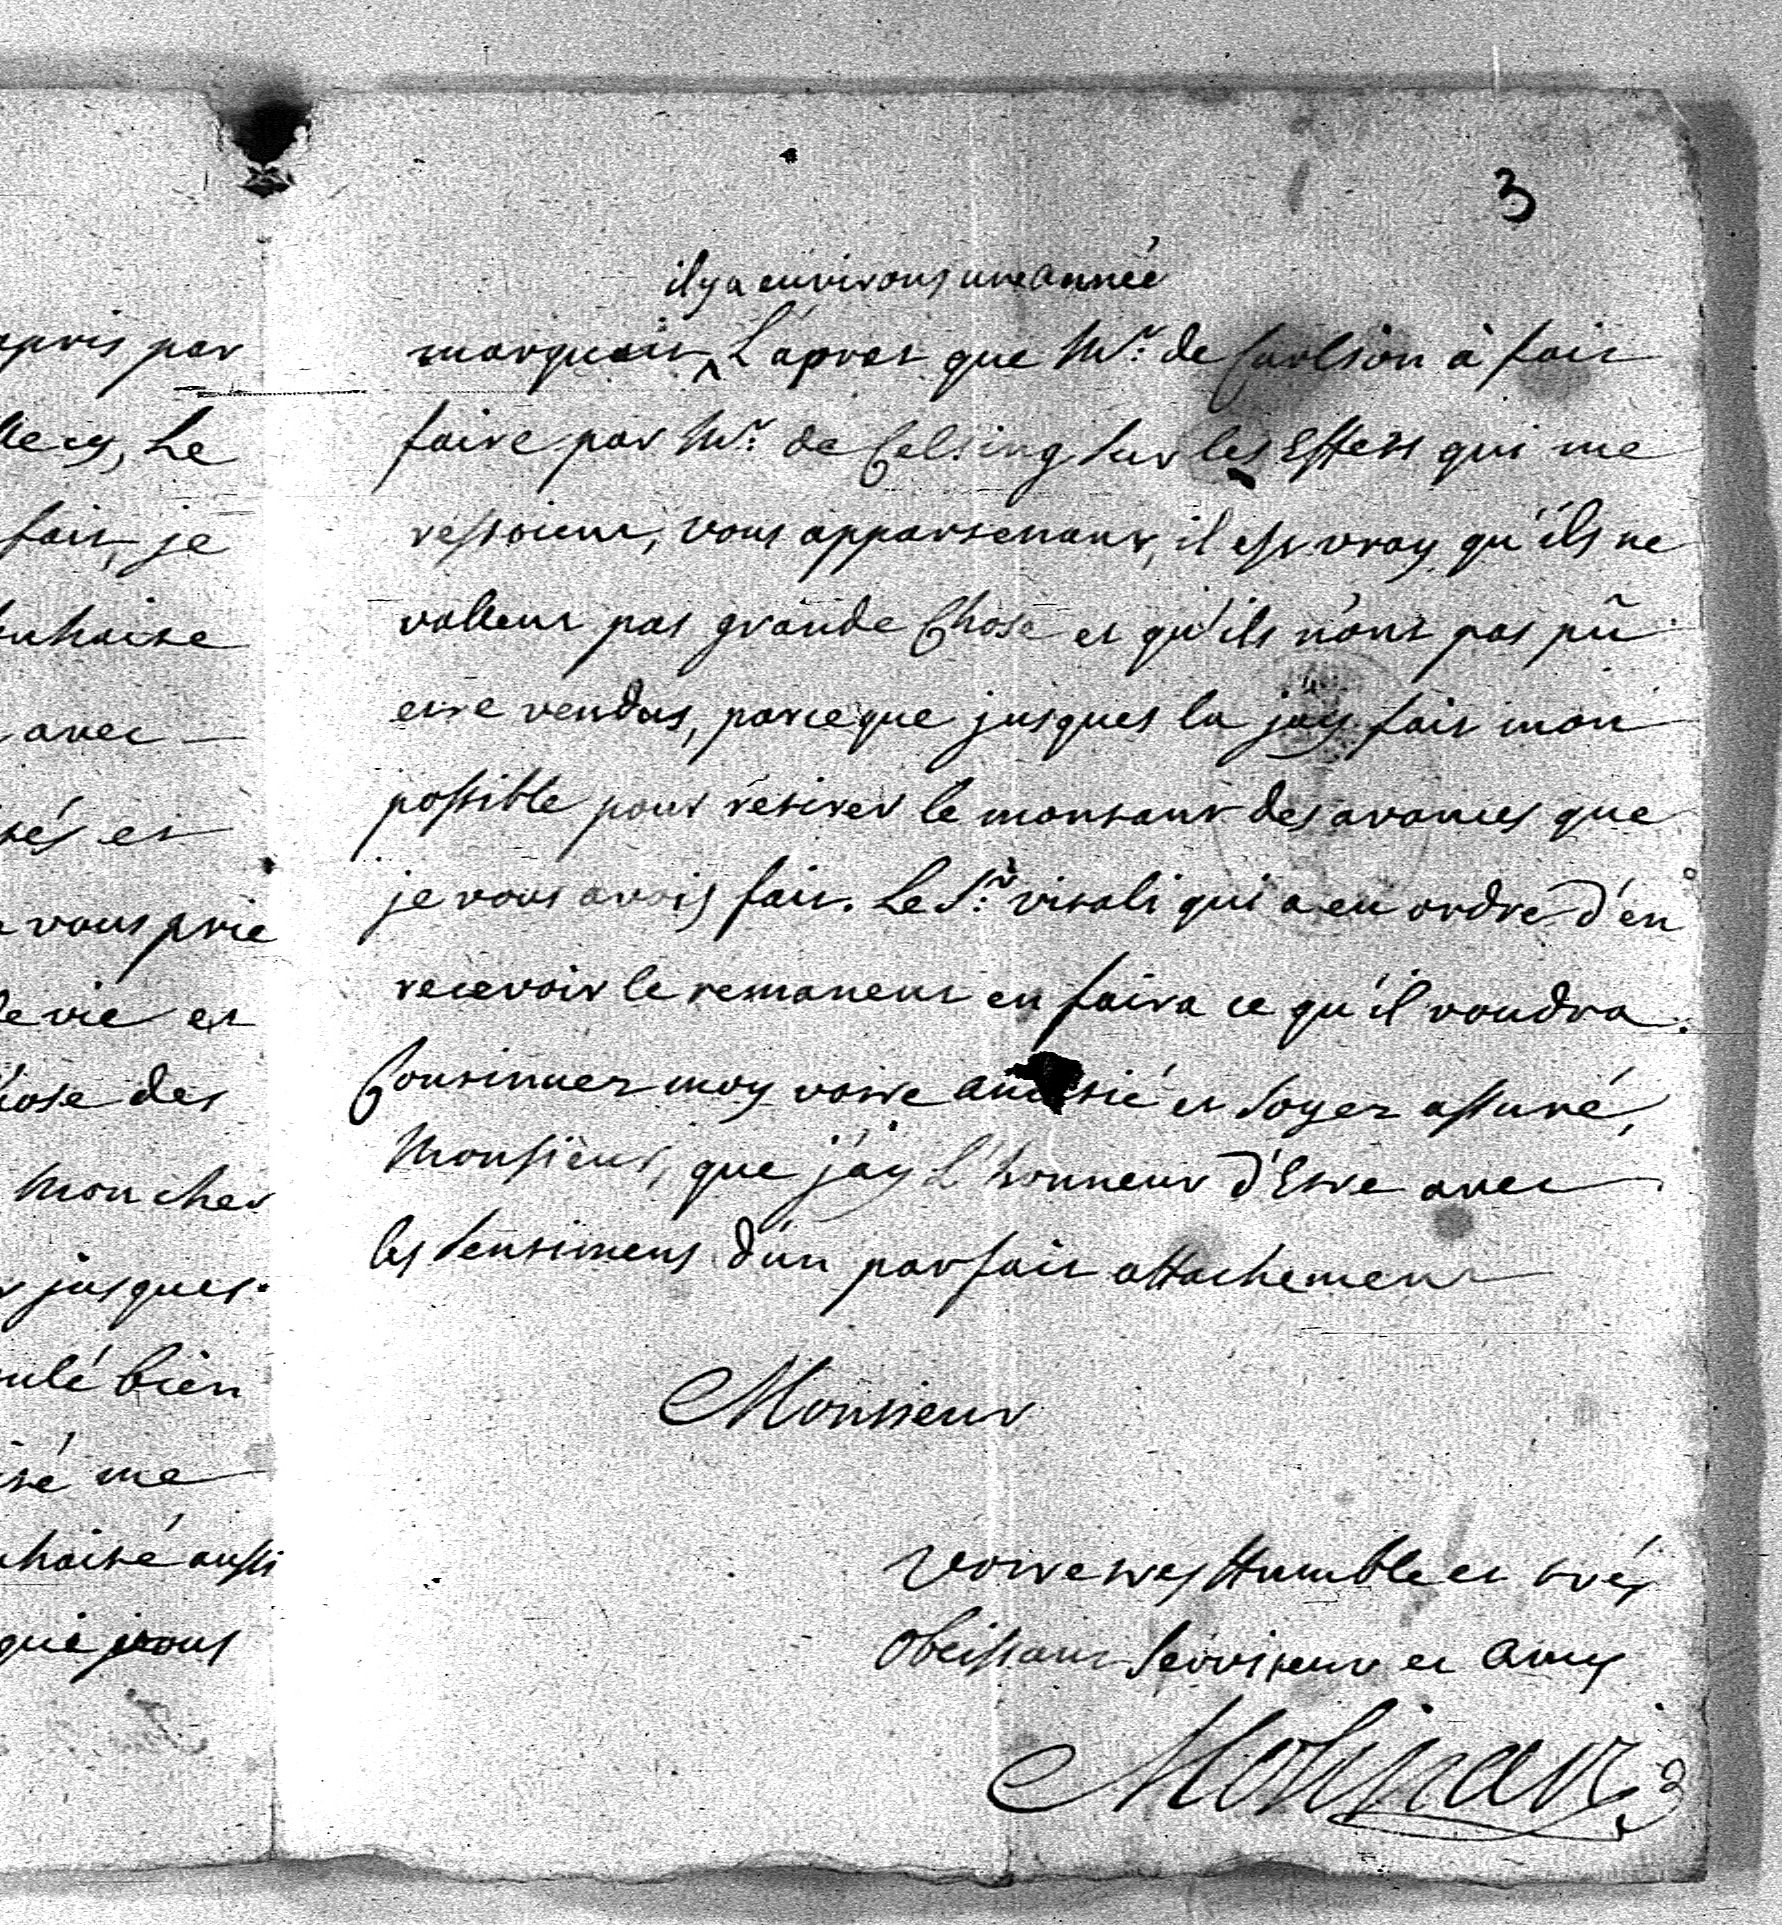 3
apris par
le
fait, je
avec
tés et
vous prie
de vie et
chose des
mon cher
jusques
bien
me
aussi
que vous
il y a environs une année
marquait L'apret que Mr. de Carlson à fait
faire par Mr. de Celsing sur les Effets qui me
restoient, vous appartenant, il est vray qu'ils ne
vallent pas grande Chose et qu'ils n'ont pas pû
etre vendus, parceque jusques la jay fait mon
possible pour retirer le montant des avances que
je vous avois fait. Le Sr. vitali qui a eu ordre d'en
recevoir le remanent en faira ce qu'il voudra.
Continuez moy votre amitié et soyez assuré,
Monsieur, que j'ay l'honneur d'Etre avec
les sentimens d'un parfait attachement
Monsieur
Votre tres Humble et trés
Obeissant Serviteur et amy
Molinari